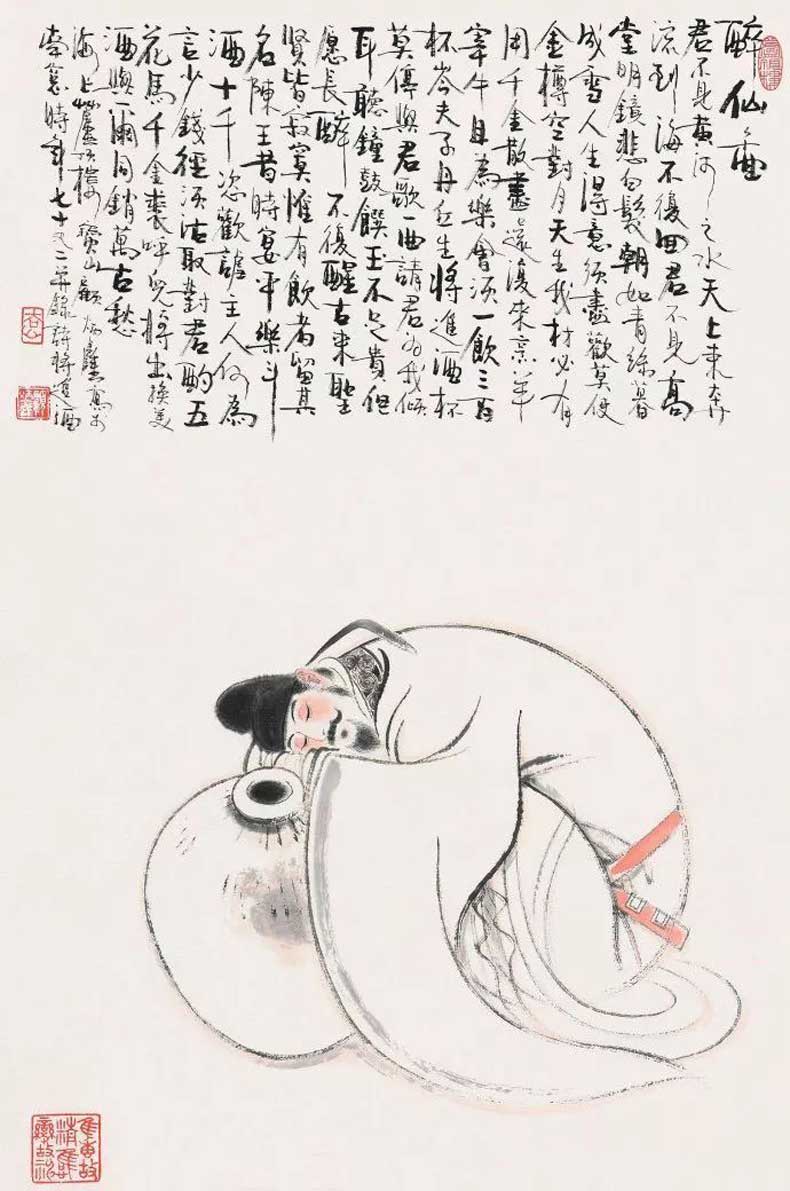 醉仙
君不見黃河之水天上來奔
流到海不復回君不見高
堂明鏡悲白髮朝如青絲暮
成雪人生得意須盡歡莫使
金樽空對月天生我材必有
用千金散盡還復來烹羊
宰牛且為樂會須一飲三百
杯岑夫子丹丘生將進酒杯
莫停與君歌一曲請君為我傾
耳聽鐘鼓饌玉不足貴但
愿長醉不復醒古來聖
賢皆寂寞惟有飲者留其
名陳王昔時宴平樂斗
酒十千恣歡謔主人何為
言少錢徑須沽取對君酌五
花馬千金裘呼兒將出換美
酒與爾同銷萬古愁
海上樓寶山顧炳鑫寫於
時年七十又二并錄詩將進酒